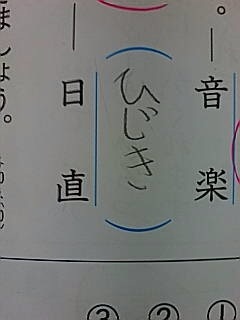 。― 音楽
ひじき
― 日直
ましょう。
① ② ③